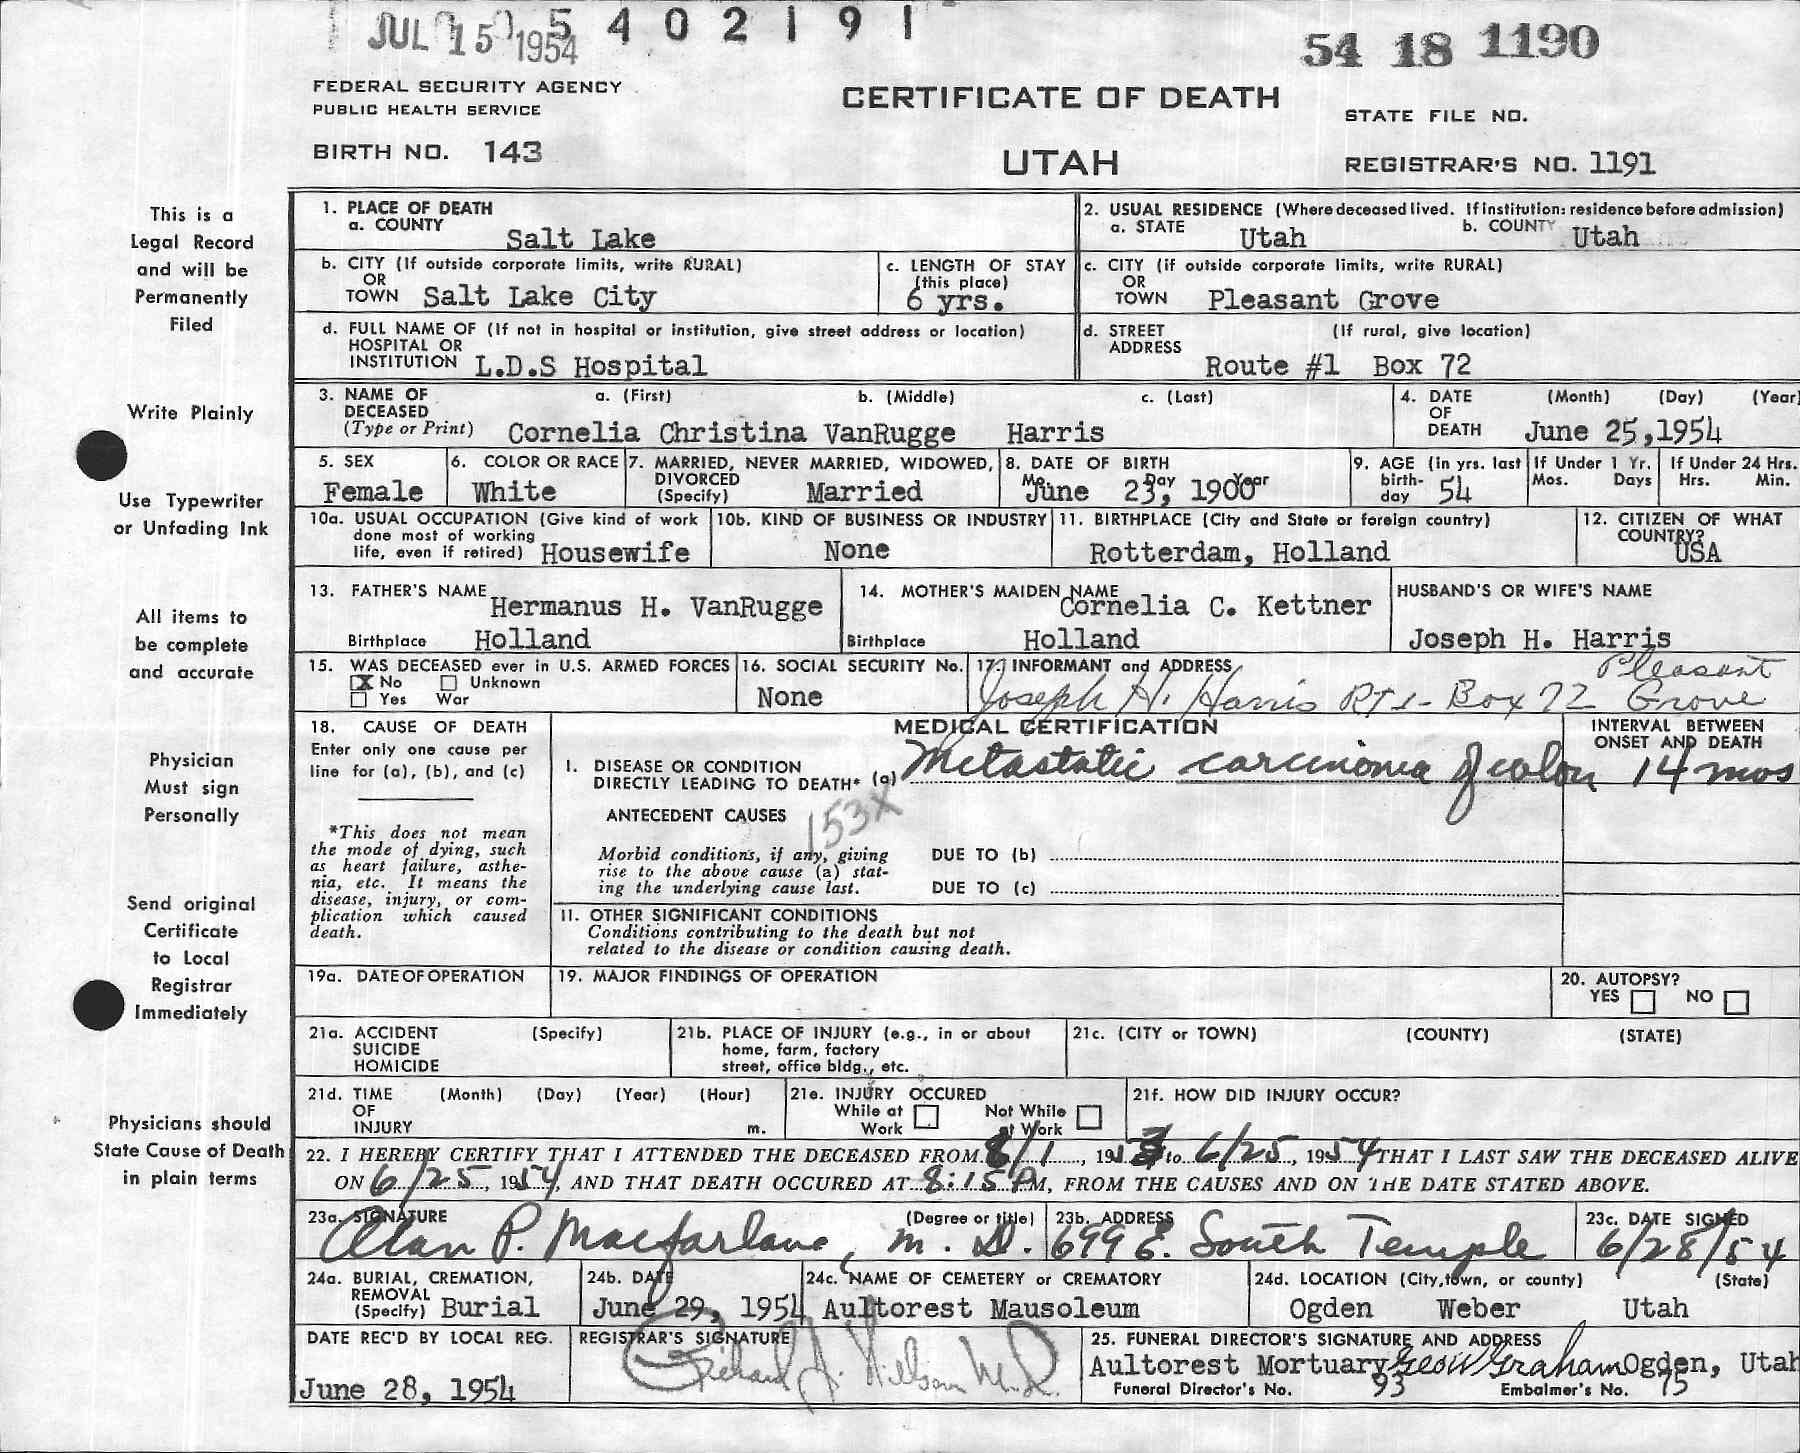 JUL 15 1954
5 4 0 2 1 9 1
54 18 1190
FEDERAL SECURITY AGENCY
PUBLIC HEALTH SERVICE
CERTIFICATE OF DEATH
STATE FILE NO.
BIRTH NO. 143
UTAH
REGISTRAR'S NO. 1191
This is a
Legal Record
and will be
Permanently
Filed
Write Plainly
Use Typewriter
or Unfading Ink
All items to
be complete
and accurate
Physician
Must sign
Personally
Send original
Certificate
to Local
Registrar
Immediately
Physicians should
State Cause of Death
in plain terms
1. PLACE OF DEATH
a. COUNTY Salt Lake
2. USUAL RESIDENCE (Where deceased lived. If institution: residence before admission)
a. STATE Utah b. COUNTY Utah
b. CITY (If outside corporate limits, write RURAL)
OR
TOWN Salt Lake City
c. LENGTH OF STAY
(this place)
6 yrs.
c. CITY (if outside corporate limits, write RURAL)
OR
TOWN Pleasant Grove
d. FULL NAME OF (If not in hospital or institution, give street address or location)
HOSPITAL OR
INSTITUTION L.D.S Hospital
d. STREET (If rural, give location)
ADDRESS
Route #1 Box 72
3. NAME OF a. (First) b. (Middle) c. (Last)
DECEASED
(Type or Print) Cornelia Christina VanRugge Harris
4. DATE (Month) (Day) (Year)
OF
DEATH June 25, 1954
5. SEX
Female
6. COLOR OR RACE
White
7. MARRIED, NEVER MARRIED, WIDOWED,
DIVORCED
(Specify) Married
8. DATE OF BIRTH
Mo. Day Year
June 23, 1900
9. AGE (in yrs. last
birth-
day 54
If Under 1 Yr.
Mos. Days
If Under 24 Hrs.
Hrs. Min.
10a. USUAL OCCUPATION (Give kind of work
done most of working
life, even if retired) Housewife
10b. KIND OF BUSINESS OR INDUSTRY
None
11. BIRTHPLACE (City and State or foreign country)
Rotterdam, Holland
12. CITIZEN OF WHAT
COUNTRY?
USA
13. FATHER'S NAME
Hermanus H. VanRugge
Birthplace Holland
14. MOTHER'S MAIDEN NAME
Cornelia C. Kettner
Birthplace Holland
HUSBAND'S OR WIFE'S NAME
Joseph H. Harris
15. WAS DECEASED ever in U.S. ARMED FORCES
X No Unknown
Yes War
16. SOCIAL SECURITY No.
None
17. INFORMANT and ADDRESS
Joseph H. Harris RT 1- Box 72 Pleasant
Grove
18. CAUSE OF DEATH
Enter only one cause per
line for (a), (b), and (c)
*This does not mean
the mode of dying, such
as heart failure, asthe-
nia, etc. It means the
disease, injury, or com-
plication which caused
death.
MEDICAL CERTIFICATION
INTERVAL BETWEEN
ONSET AND DEATH
I. DISEASE OR CONDITION
DIRECTLY LEADING TO DEATH* (a) Metastatic carcinoma of colon 14 mos
153X
ANTECEDENT CAUSES
Morbid conditions, if any, giving
rise to the above cause (a) stat-
ing the underlying cause last.
DUE TO (b)
DUE TO (c)
II. OTHER SIGNIFICANT CONDITIONS
Conditions contributing to the death but not
related to the disease or condition causing death.
19a. DATE OF OPERATION
19. MAJOR FINDINGS OF OPERATION
20. AUTOPSY?
YES NO
21a. ACCIDENT (Specify)
SUICIDE
HOMICIDE
21b. PLACE OF INJURY (e.g., in or about
home, farm, factory
street, office bldg., etc.
21c. (CITY or TOWN) (COUNTY) (STATE)
21d. TIME (Month) (Day) (Year) (Hour)
OF
INJURY m.
21e. INJURY OCCURED
While at
Work
Not While
at Work
21f. HOW DID INJURY OCCUR?
22. I HEREBY CERTIFY THAT I ATTENDED THE DECEASED FROM 8/1, 1953 to 6/25, 1954 THAT I LAST SAW THE DECEASED ALIVE
ON 6/25, 1954, AND THAT DEATH OCCURED AT 8:15 PM, FROM THE CAUSES AND ON THE DATE STATED ABOVE.
23a. SIGNATURE (Degree or title)
Alan P. Macfarlane, M.D.
23b. ADDRESS
699 E. South Temple
23c. DATE SIGNED
6/28/54
24a. BURIAL, CREMATION,
REMOVAL
(Specify) Burial
24b. DATE
June 29, 1954
24c. NAME OF CEMETERY or CREMATORY
Aultorest Mausoleum
24d. LOCATION (City, town, or county) (State)
Ogden Weber Utah
DATE REC'D BY LOCAL REG.
June 28, 1954
REGISTRAR'S SIGNATURE
Richard A. Nielson M.D.
25. FUNERAL DIRECTOR'S SIGNATURE AND ADDRESS
Aultorest Mortuary Geo W Graham Ogden, Utah
Funeral Director's No. 93 Embalmer's No. 75